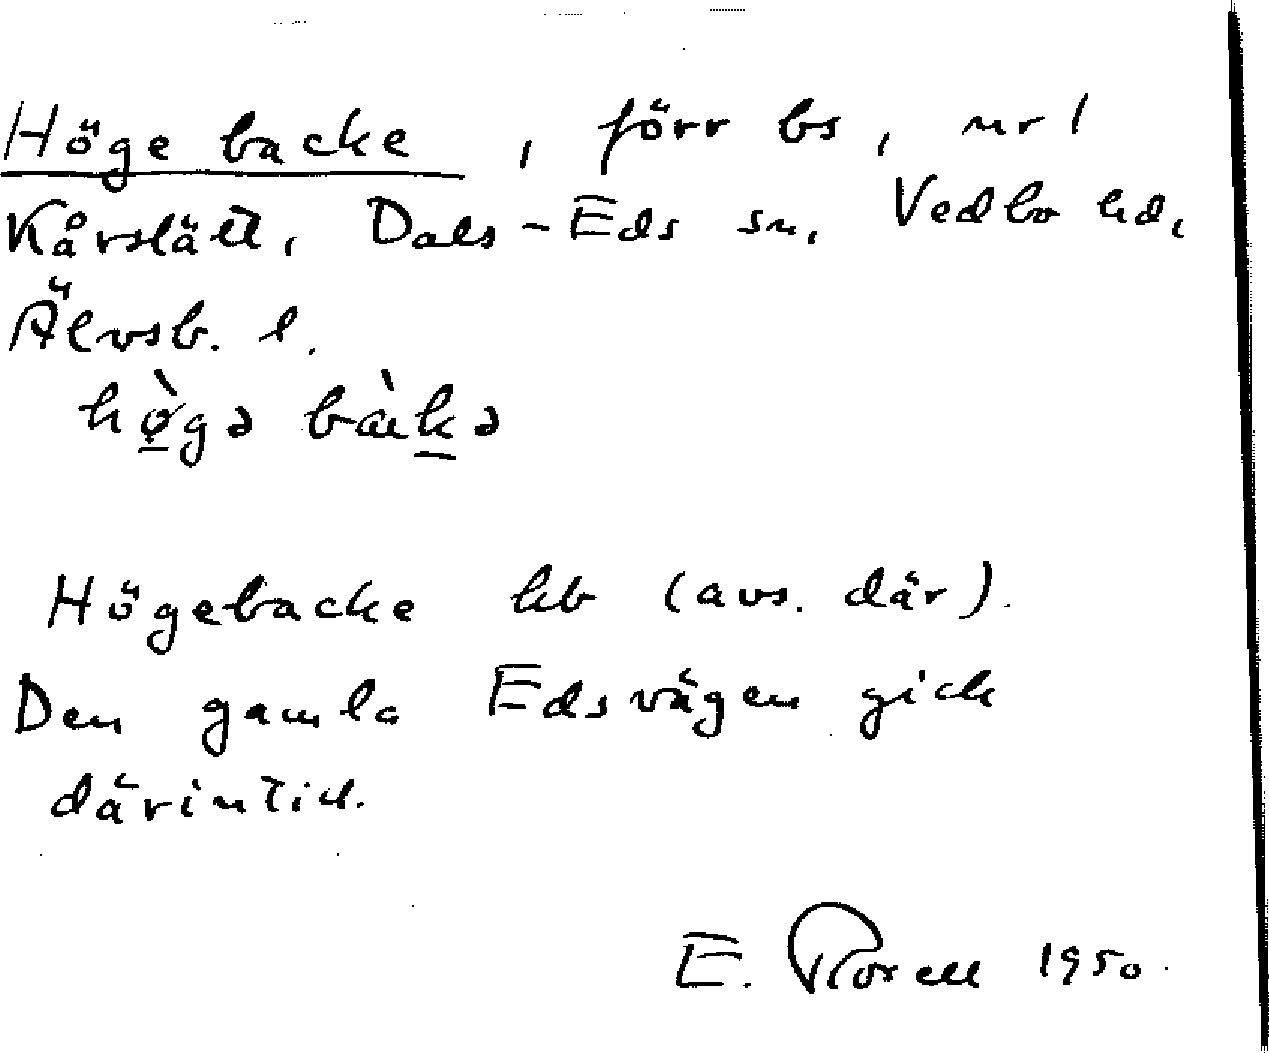 Högebacke, förr bs, nr 1
Kårslätt, Dals-Eds sn, Vedbo hd,
Älvsb. l.
hø̀gə bàkə
Högebacke hb (avs. där).
Den gamla Edsvägen gick
därintill.
E. Rosell 1950.